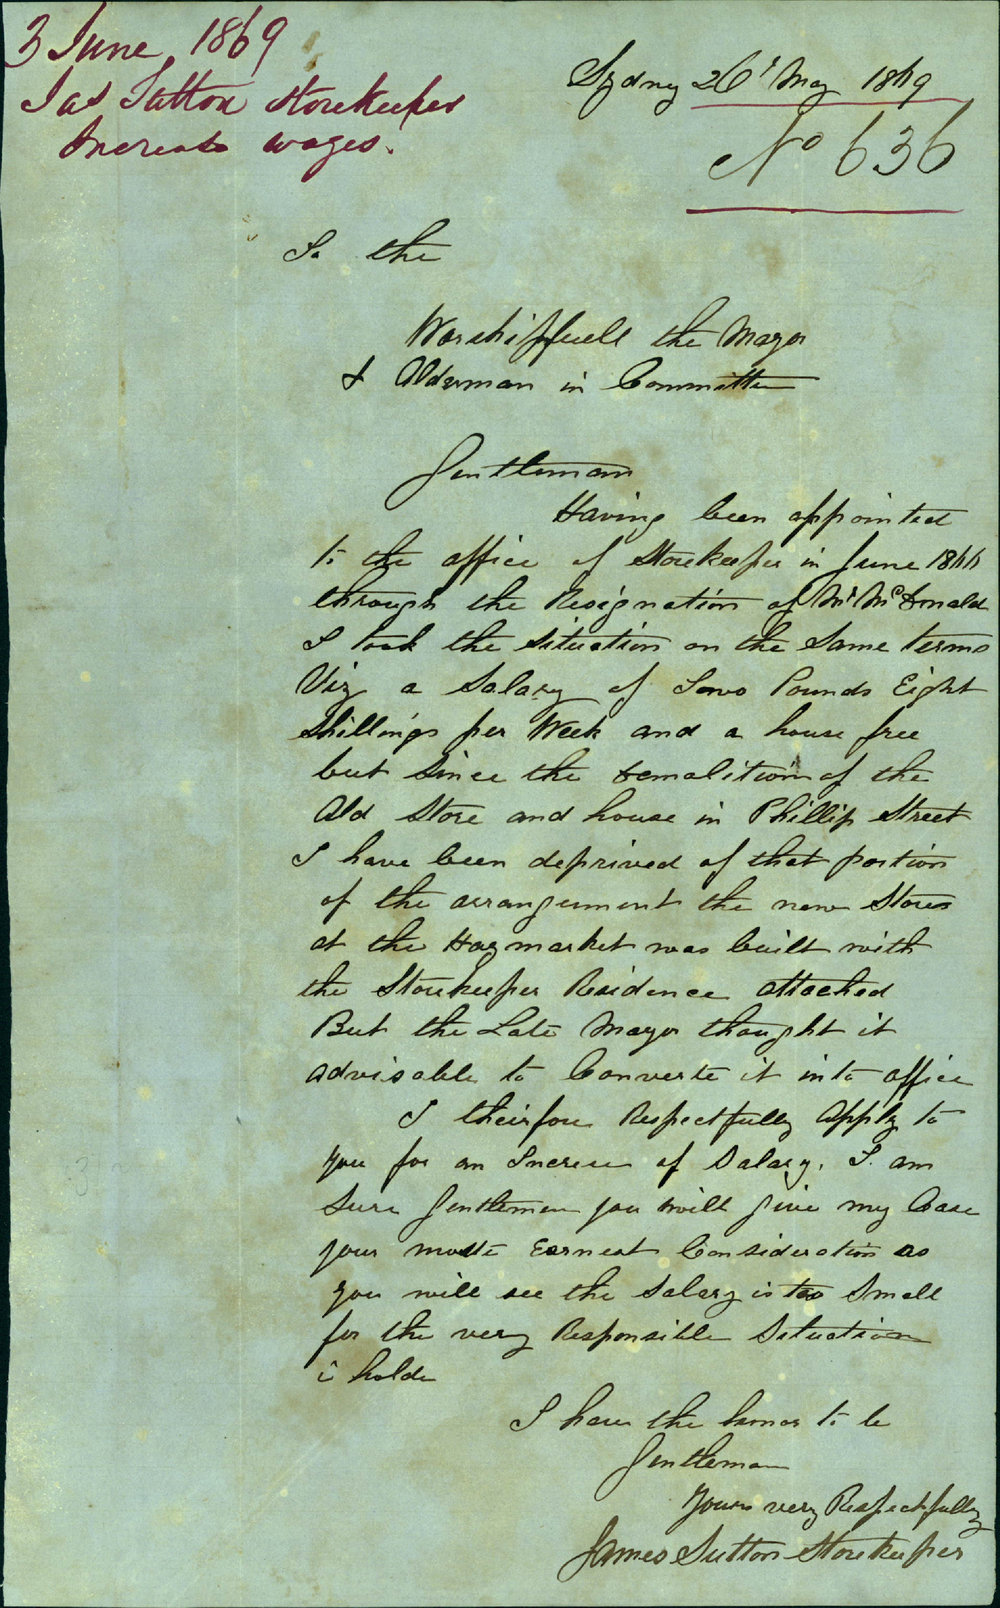 3 June 1869
Jas Sutton Storekeeper
Increase wages.
Sydney 26t May 1869
No 636
To the
Worshipfull the Mayor
& Alderman in Committee
Gentleman
Having been appointed
to the office of Storekeeper in June 1866
through the Resignation of Mr McDonald
I took the situation on the Same terms
Viz a Salary of Two Pounds Eight
Shillings per Week and a house free
but Since the demolition of the
Old Store and house in Phillip Street
I have been deprived of that portion
of the arrangement the new Stores
at the Haymarket was built with
the Storekeeper Residence attached
But the Late Mayor thought it
advisable to Converte it into office
I theirfore Respectfully Apply to
you for an Increse of Salary. I am
Sure Gentlemen you will give my Case
your moste Earnest Consideration as
you will see the Salary is too Small
for the very Responsible Situation
i holde
I have the honor to be
Gentleman
Yours very Respectfully
James Sutton Storekeeper